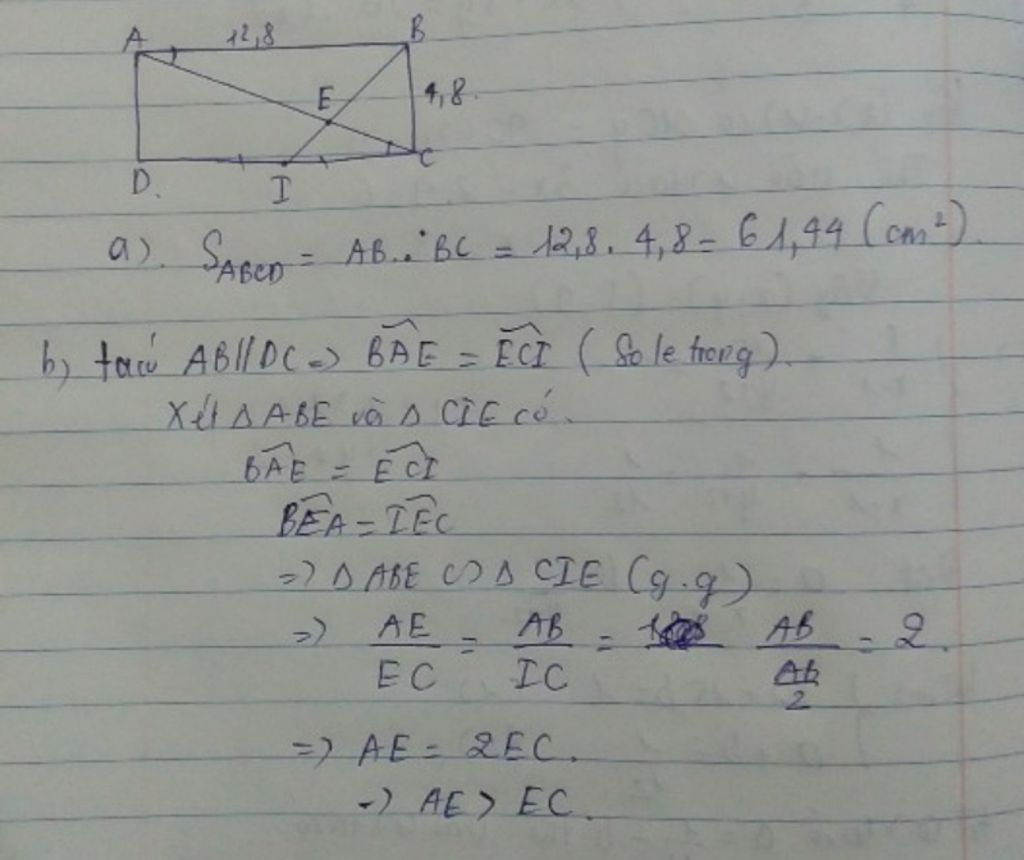 A 12,8 B
E 4,8.
D. I C
a). S_ABCD = AB . BC = 12,8. 4,8 = 61,44 (cm²).
b) ta có AB//DC => BÂE = EĈI (So le trong).
Xét Δ ABE và Δ CIE có.
BÂE = EĈI
BÊA = IÊC
=> Δ ABE ∽ Δ CIE (g.g)
=> AE/EC = AB/IC = AB/(AB/2) = 2.
=> AE = 2EC.
-> AE > EC.